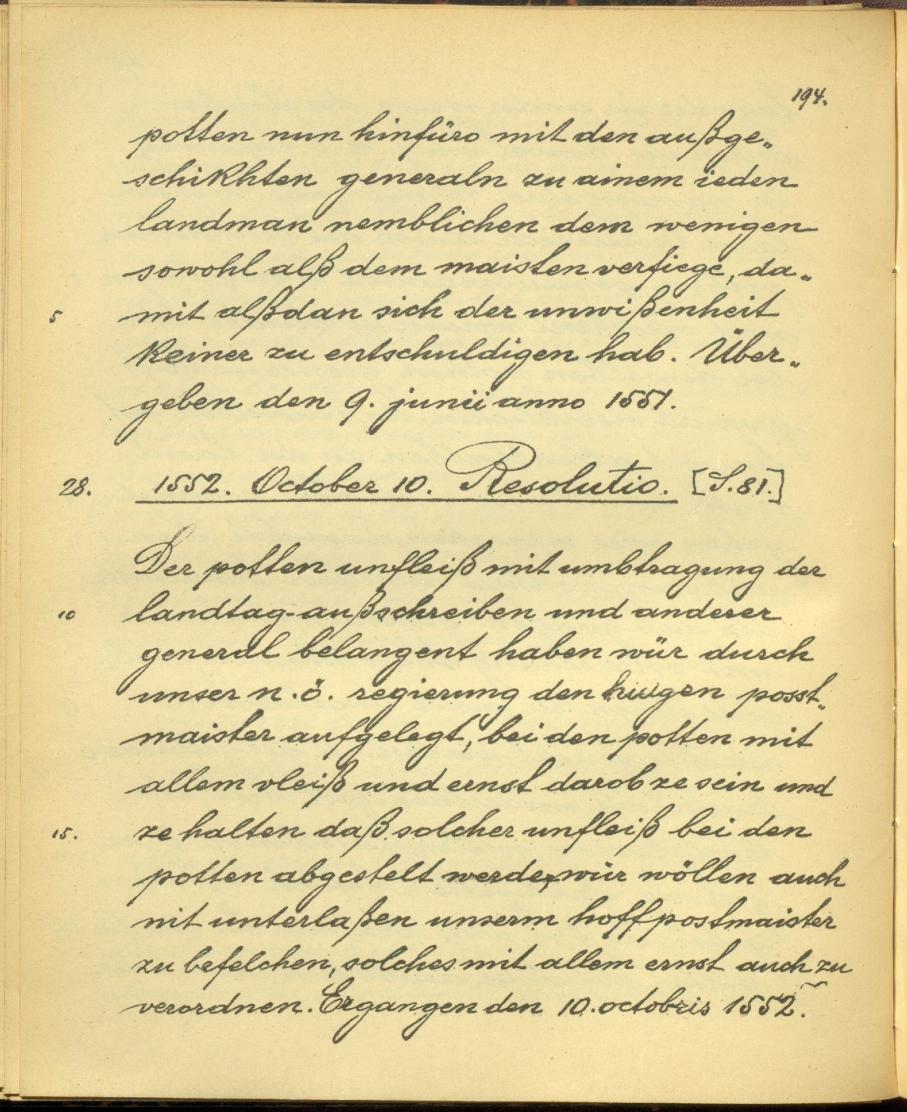 194.
potten nun hinfüro mit den außge„
schikhten generaln zu ainem ieden
landman nemblichen dem wenigen
sowohl alß dem maisten verfiege, da„
5 mit alßdan sich der unwißenheit
keiner zu entschuldigen hab. Über„
geben den 9. junii anno 1551.
28. 1552. October 10. Resolutio. [S.81.]
Der potten unfleiß mit umbtragung der
10 landtag-außschreiben und anderer
general belangent haben wür durch
unser n.ö. regierung den posst„
maister aufgelegt, bei den potten mit
allem vleiß und ernst darob ze sein und
15. ze halten daß solcher unfleiß bei den
potten abgestelt werde, wür wöllen auch
nit unterlaßen unserm hoffpostmaister
zu befelchen, solches mit allem ernst auch zu
verordnen. Ergangen den 10. octobris 1552.